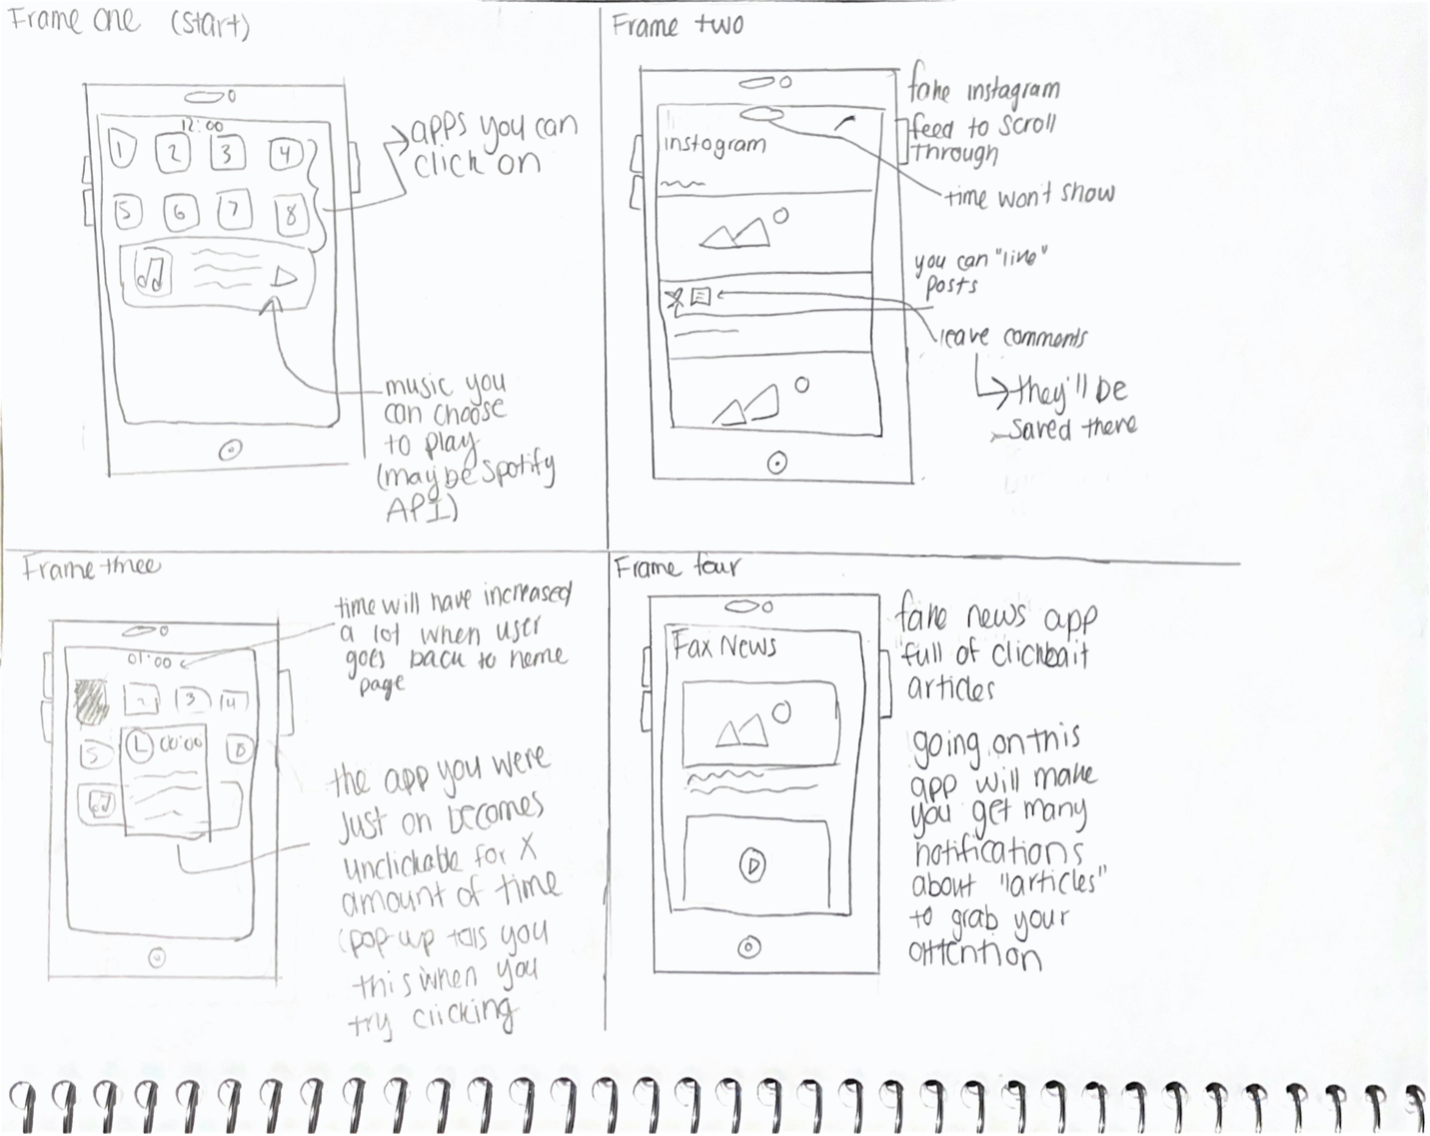 Frame one (start)
12:00
1 2 3 4
5 6 7 8
apps you can
click on
music you
can choose
to play
(maybe spotify
API)
Frame two
instagram
fake instagram
feed to scroll
through
time won't show
you can "like"
posts
leave comments
they'll be
saved there
Frame three
01:00
2 3 4
5 8
00:00
time will have increased
a lot when user
goes back to home
page
the app you were
just on becomes
unclickable for X
amount of time
(pop-up tells you
this when you
try clicking
Frame four
Fax News
fake news app
full of clickbait
articles
going on this
app will make
you get many
notifications
about "articles"
to grab your
attention